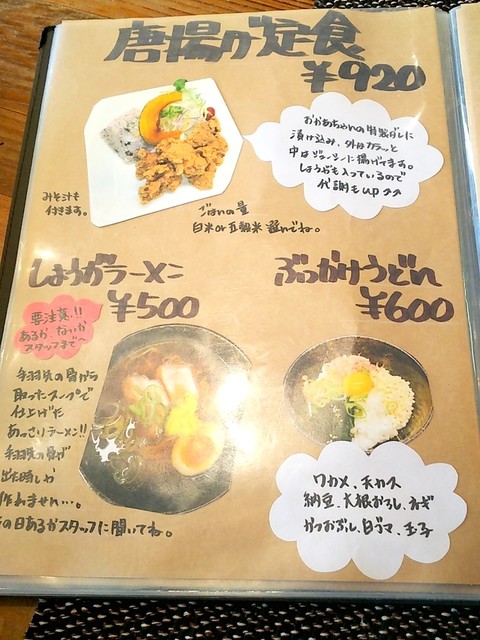 唐揚げ定食
¥920
おかあちゃんの特製ダレに
漬け込み、外はカラッと
中はジューシーに揚げてます。
しょうがも入っているので
代謝もup↗↗
みそ汁も
付きます。
ごはんの量
白米or五穀米 選んでね。
しょうがラーメン
¥500
要注意!!
あるか ないか
スタッフまで〜
手羽先の骨から
取ったスープで
仕上げた
あっさりラーメン!!
手羽先の骨が
出た時しか
作れません…。
の日あるかスタッフに聞いてね。
ぶっかけうどん
¥600
ワカメ、天カス
納豆、大根おろし、ネギ
かつおぶし、白ゴマ、玉子